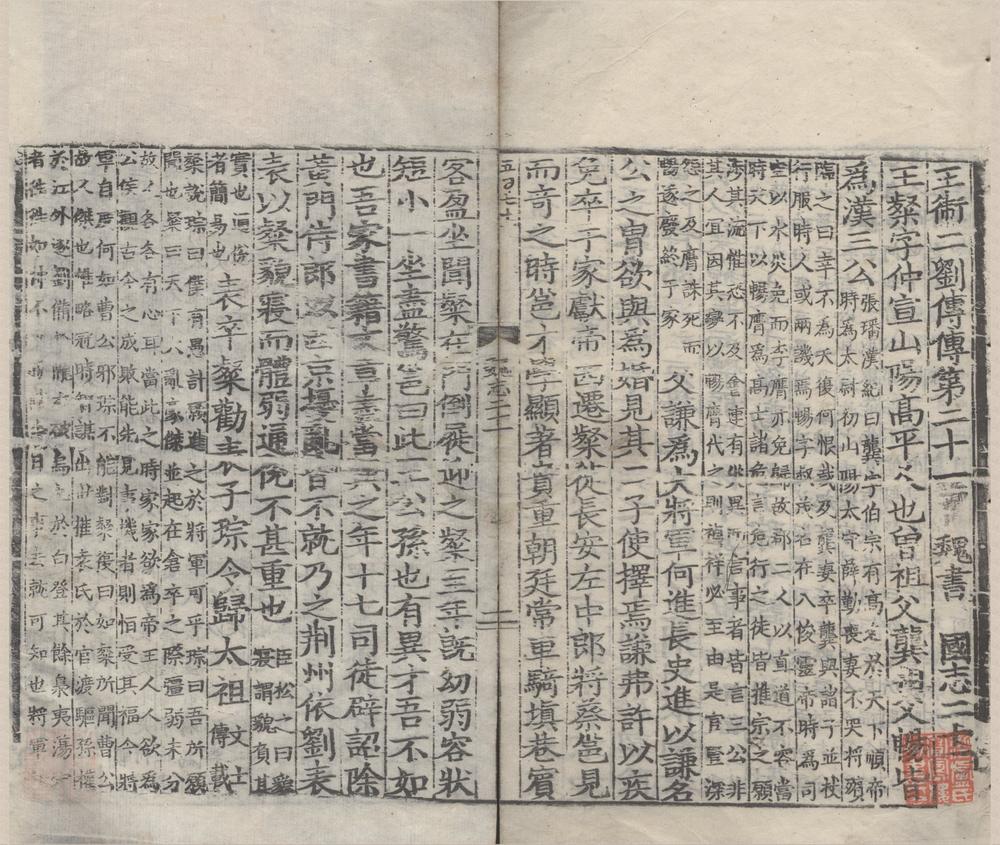 王衛二劉傅傳第二十一 魏書 國志二十一
王粲字仲宣山陽髙平人也曽祖父龔祖父暢皆
爲漢三公
張璠漢紀曰龔字伯宗有髙名於天下順帝
時爲太尉初山陽太守薛勤喪妻不哭將殯
臨之曰幸不為夭復何恨哉及龔妻卒龔與諸子並杖
行服時人或兩譏焉暢字叔茂名在八俊靈帝時爲司
空以水災免而李膺亦免歸故郡二人以直道不容當
時天下以暢膺爲髙士諸危言危行之徒皆推宗之願
渉其流惟恐不及會連有災異而言事者皆言三公非
其人宜因其變以暢膺代之則禎祥必至由是宦豎深
怨之及膺誅死而
暢遂廢終于家
父謙爲大將軍何進長史進以謙名
公之胄欲與爲婚見其二子使擇焉謙弗許以疾
免卒于家獻帝西遷粲從長安左中郎將蔡邕見
而奇之時邕才學顯著貴重朝廷常車騎填巷賓
魏志二十一
二
客盈坐聞粲在門倒屣迎之粲至年既幼弱容狀
短小一坐盡驚邕曰此王公孫也有異才吾不如
也吾家書籍文章盡當與之年十七司徒辟詔除
黃門侍郎以西京擾亂皆不就乃之荆州依劉表
表以粲貌寢而體弱通侻不甚重也
臣松之曰貌
寢謂貌負其
實也通侻
者簡易也
表卒粲勸表子琮令歸太祖
文士
傳載
粲說琮曰僕有愚計願進之於將軍可乎琮曰吾所願
聞也粲曰天下大亂豪傑並起在倉卒之際彊弱未分
故人各各有心耳當此之時家家欲爲帝王人人欲爲
公侯觀古今之成敗能先見事機者則恒受其福今將
軍自度何如曹公邪琮不能對粲復曰如粲所聞曹公
故人傑也雄略冠時智謀出世摧袁氏於官渡驅孫權
於江外逐劉備於隴右破烏丸於白登其餘梟夷蕩定
者往往如神不可勝計今日之事去就可知也將軍